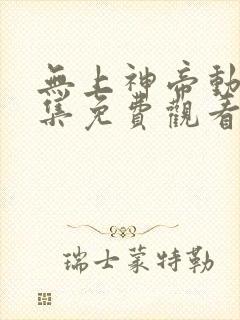 無上神帝動
集免費觀看
瑞士蒙特勒